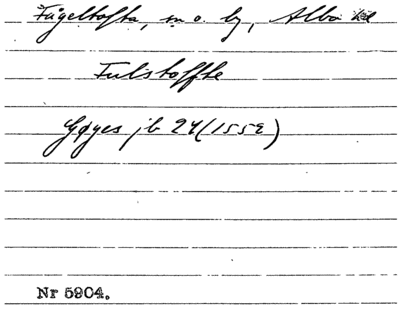 Fågeltofta, sn o. by, Albo hd
Fulstoffte
Gøyes jb 24 (1552)
Nr 5904.